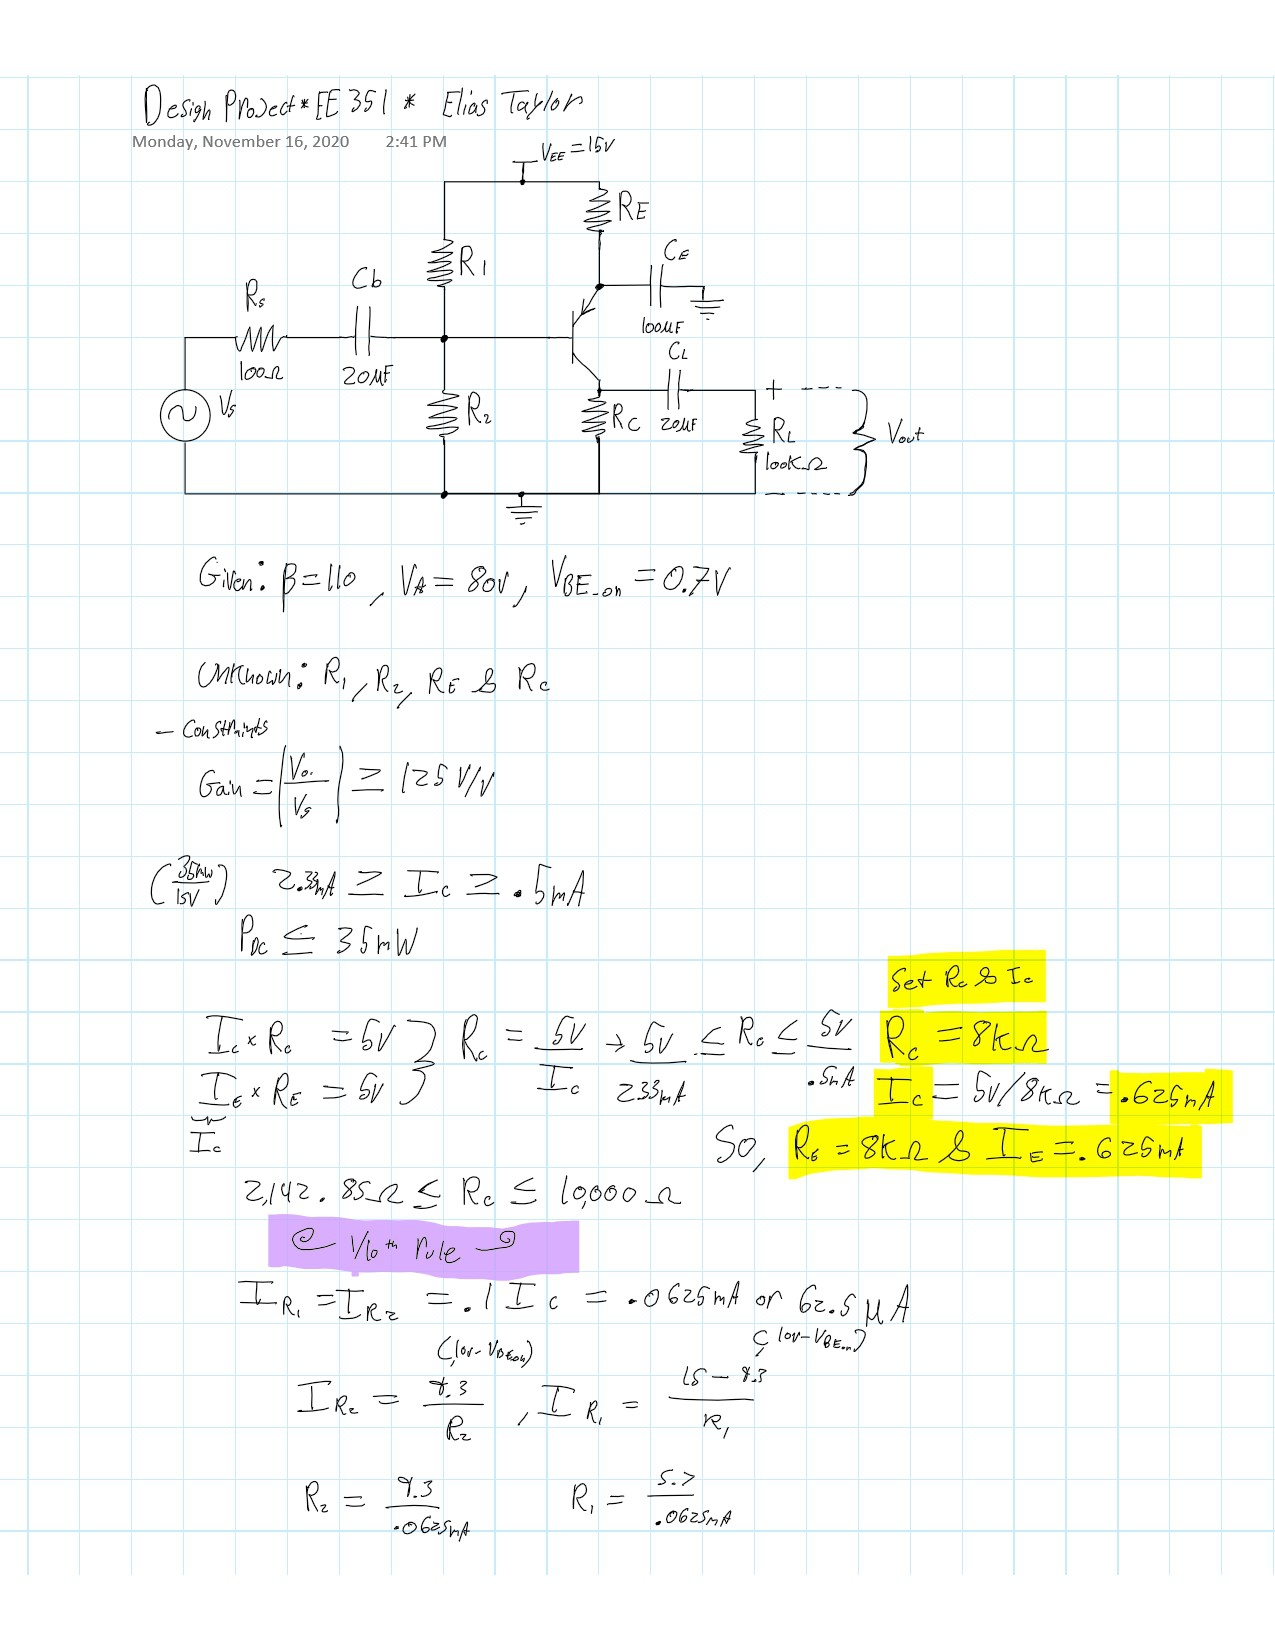 Design Project * EE 351 * Elias Taylor
Monday, November 16, 2020 2:41 PM
VEE = 15V
RE
R1
CE
Cb
Rs
100μF
CL
100Ω
20μF
Vs
R2
RC
20μF
+
RL
Vout
100KΩ
-
Given: β=110, VA = 80V, VBE-on = 0.7V
Unknown: R1, R2, RE & Rc
- Constraints
Gain = |Vo/Vs| ≥ 125 V/V
(35mW/15V) 2.33mA ≥ Ic ≥ .5mA
PDC ≤ 35mW
Set Rc & Ic
Ic × Rc = 5V } Rc = 5V/Ic → 5V/2.33mA ≤ Rc ≤ 5V/.5mA Rc = 8KΩ
IE × RE = 5V Ic = 5V/8KΩ = .625mA
Ic
So, RE = 8KΩ & IE = .625mA
2,142.85Ω ≤ Rc ≤ 10,000Ω
1/10th rule
IR1 = IR2 = .1 Ic = .0625mA or 62.5 μA
(10V-VBEon) (10V-VBEon)
IR2 = 9.3/R2 , IR1 = 15-9.3/R1
R2 = 9.3/.0625mA R1 = 5.7/.0625mA